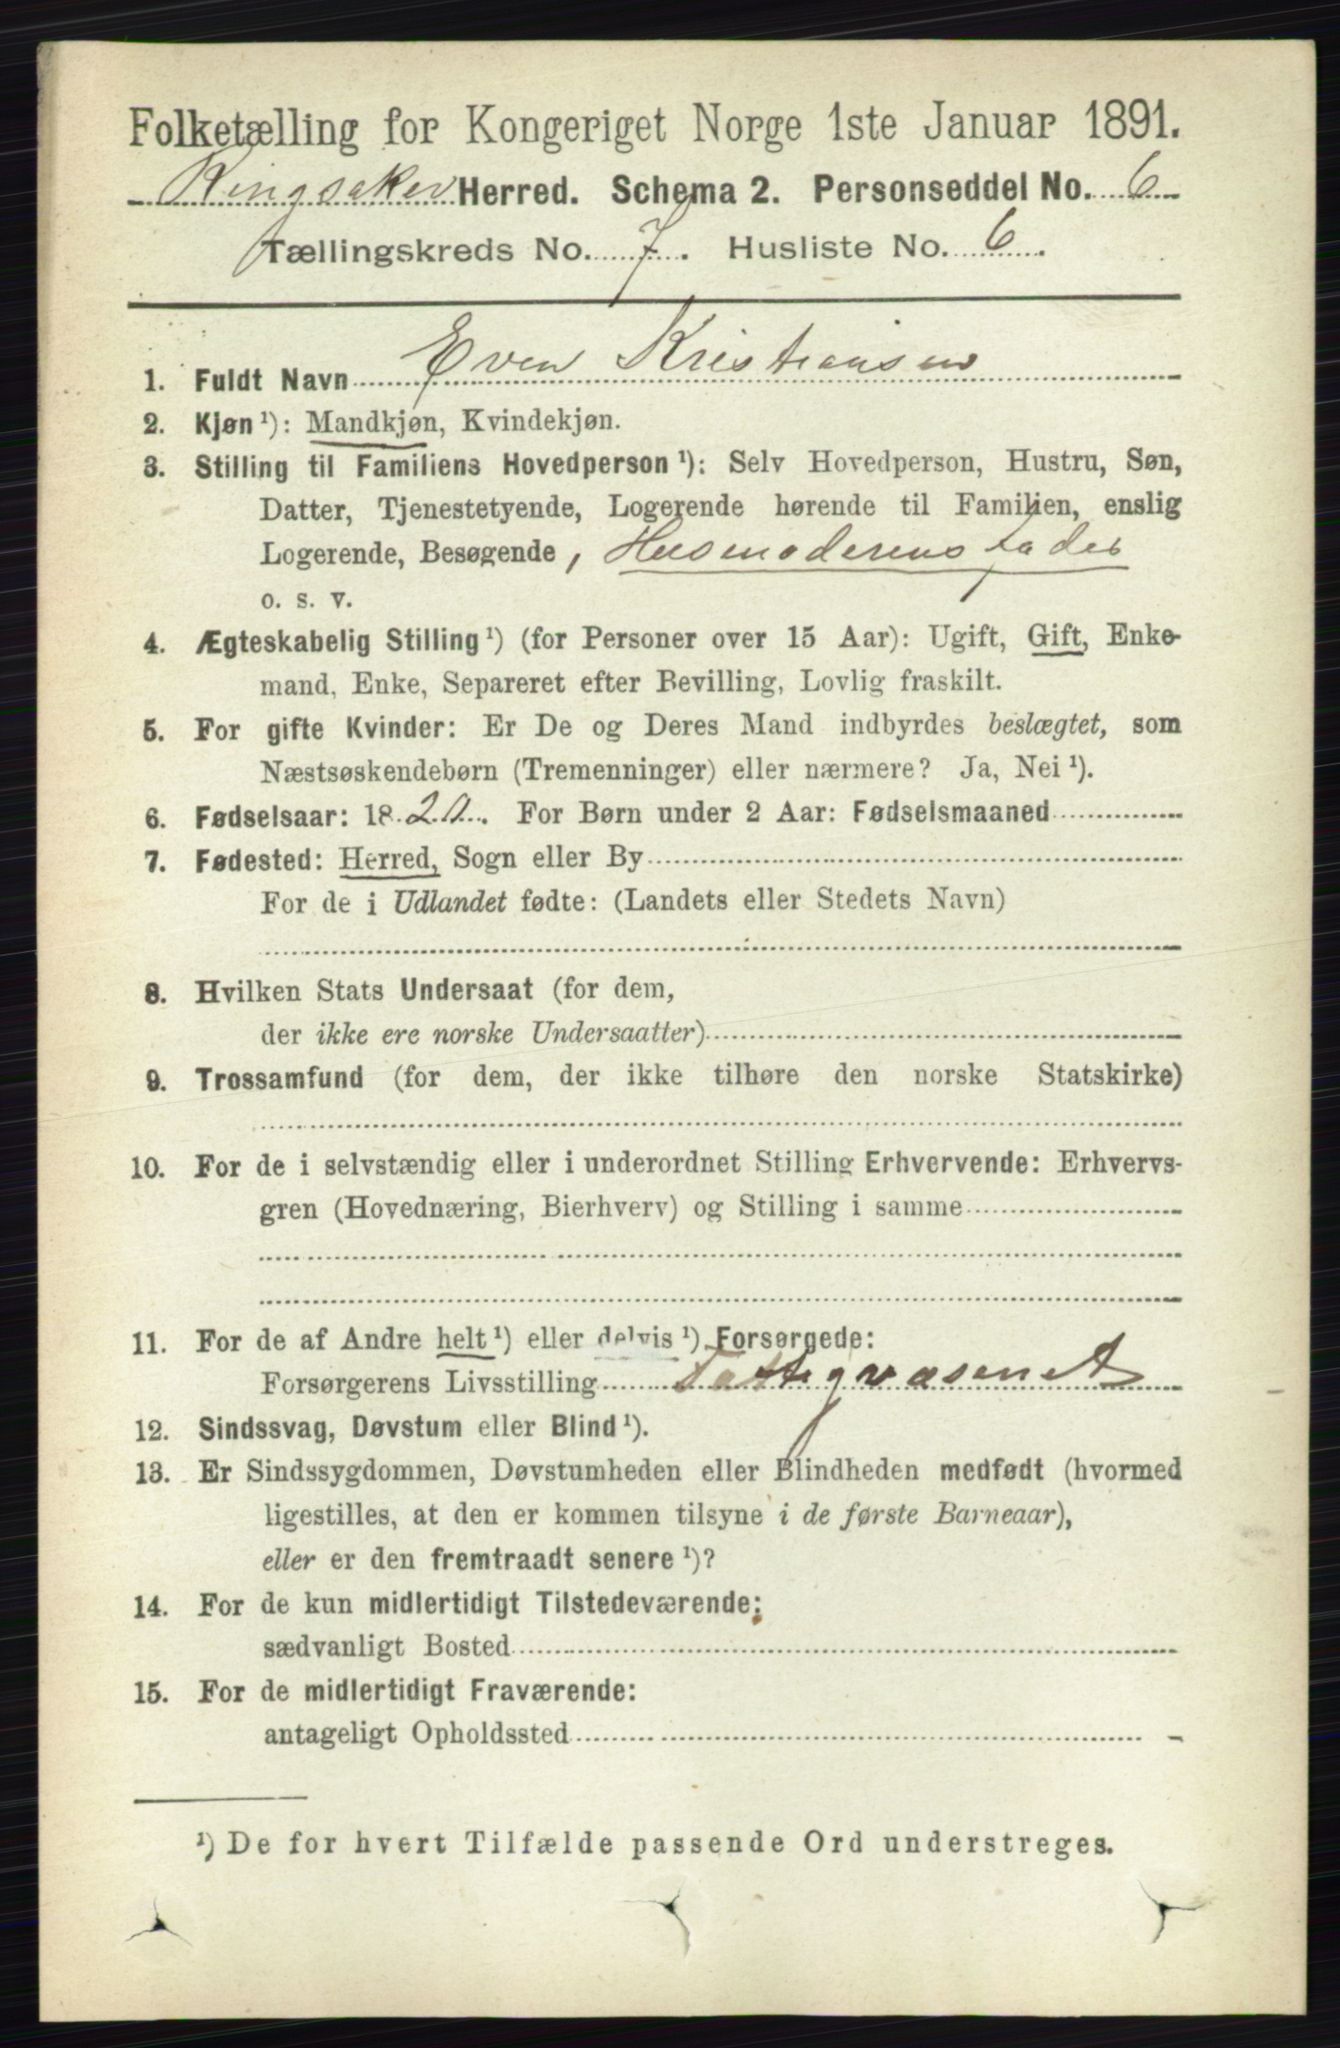 Folketælling for Kongeriget Norge 1ste Januar 1891.
Ringsaker Herred. Schema 2. Personseddel No. 6
Tællingskreds No. 7. Husliste No. 6.
1. Fuldt Navn Even Kristiansen
2. Kjøn ¹): Mandkjøn, Kvindekjøn.
3. Stilling til Familiens Hovedperson ¹): Selv Hovedperson, Hustru, Søn,
Datter, Tjenestetyende, Logerende hørende til Familien, enslig
Logerende, Besøgende, Husmoderens fader
o. s. v.
4. Ægteskabelig Stilling ¹) (for Personer over 15 Aar): Ugift, Gift, Enke-
mand, Enke, Separeret efter Bevilling, Lovlig fraskilt.
5. For gifte Kvinder: Er De og Deres Mand indbyrdes beslægtet, som
Næstsøskendebørn (Tremenninger) eller nærmere? Ja, Nei ¹).
6. Fødselsaar: 1820. For Børn under 2 Aar: Fødselsmaaned
7. Fødested: Herred, Sogn eller By
For de i Udlandet fødte: (Landets eller Stedets Navn)
8. Hvilken Stats Undersaat (for dem,
der ikke ere norske Undersaatter)
9. Trossamfund (for dem, der ikke tilhøre den norske Statskirke)
10. For de i selvstændig eller i underordnet Stilling Erhvervende: Erhvervs-
gren (Hovednæring, Bierhverv) og Stilling i samme
11. For de af Andre helt ¹) eller delvis ¹) Forsørgede:
Forsørgerens Livsstilling Fattigvæsenet
12. Sindssvag, Døvstum eller Blind ¹).
13. Er Sindssygdommen, Døvstumheden eller Blindheden medfødt (hvormed
ligestilles, at den er kommen tilsyne i de første Barneaar),
eller er den fremtraadt senere ¹)?
14. For de kun midlertidigt Tilstedeværende:
sædvanligt Bosted
15. For de midlertidigt Fraværende:
antageligt Opholdssted
¹) De for hvert Tilfælde passende Ord understreges.